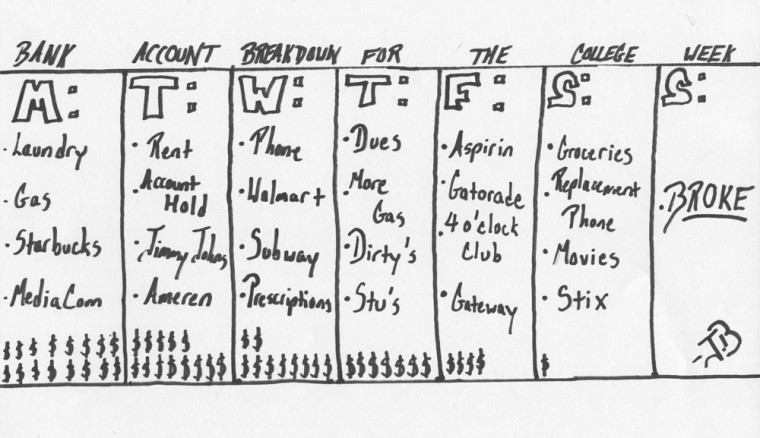 BANK ACCOUNT BREAKDOWN FOR THE COLLEGE WEEK
M:
· Laundry
· Gas
· Starbucks
· MediaCom
$ $ $ $ $ $ $ $
$ $ $ $ $ $ $ $
T:
· Rent
· Account
Hold
· Jimmy Johns
· Ameren
$$$$$
$$$$$$$$
W:
· Phone
· Walmart
· Subway
· Prescriptions
$$
$$$$$$$$
T:
· Dues
· More
Gas
· Dirty's
· Stu's
$$$$$$$
F:
· Aspirin
· Gatorade
· 4 o'clock
Club
· Gateway
$$$$
S:
· Groceries
· Replacement
Phone
· Movies
· Stix
$
S:
· BROKE
JB